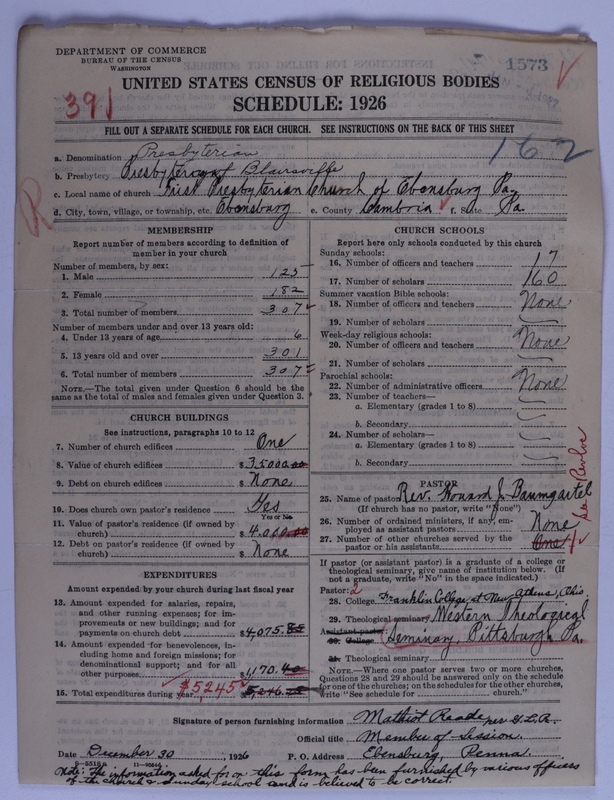 DEPARTMENT OF COMMERCE
BUREAU OF THE CENSUS
WASHINGTON
1573
UNITED STATES CENSUS OF RELIGIOUS BODIES
391
SCHEDULE: 1926
FILL OUT A SEPARATE SCHEDULE FOR EACH CHURCH. SEE INSTRUCTIONS ON THE BACK OF THIS SHEET
162
a. Denomination Presbyterian
b. Presbytery Presbytery of Blairsville
c. Local name of church First Presbyterian Church of Ebensburg Pa.
d. City, town, village, or township, etc. Ebensburg e. County Cambria f. State Pa.
R
MEMBERSHIP
Report number of members according to definition of member in your church
Number of members, by sex:
1. Male 125
2. Female 182
3. Total number of members 307
Number of members under and over 13 years old:
4. Under 13 years of age 6
5. 13 years old and over 301
6. Total number of members 307
NOTE.—The total given under Question 6 should be the same as the total of males and females given under Question 3.
CHURCH BUILDINGS
See instructions, paragraphs 10 to 12
7. Number of church edifices One
8. Value of church edifices $35000.00
9. Debt on church edifices $ None
10. Does church own pastor's residence? Yes
Yes or No
11. Value of pastor's residence (if owned by church) $4.000.00
12. Debt on pastor's residence (if owned by church) $ None
EXPENDITURES
Amount expended by your church during last fiscal year
13. Amount expended for salaries, repairs, and other running expenses; for improvements or new buildings; and for payments on church debt $4,075.85
14. Amount expended for benevolences, including home and foreign missions; for denominational support; and for all other purposes 1,170.40
15. Total expenditures during year $5,245 $5,246.25
CHURCH SCHOOLS
Report here only schools conducted by this church
Sunday schools:
16. Number of officers and teachers 17
17. Number of scholars 160
Summer vacation Bible schools:
18. Number of officers and teachers None
19. Number of scholars
Week-day religious schools:
20. Number of officers and teachers None
21. Number of scholars
Parochial schools:
22. Number of administrative officers None
23. Number of teachers—
a. Elementary (grades 1 to 8)
b. Secondary
24. Number of scholars—
a. Elementary (grades 1 to 8)
b. Secondary
PASTOR
25. Name of pastor Rev. Howard J. Baumgartel
(If church has no pastor, write "None")
26. Number of ordained ministers, if any, employed as assistant pastors None
27. Number of other churches served by the pastor or his assistants One
If pastor (or assistant pastor) is a graduate of a college or theological seminary, give name of institution below. (If not a graduate, write "No" in the space indicated.)
Pastor: 2
28. College Franklin College at New Athens, Ohio
29. Theological seminary Western Theological
Assistant pastor:
30. College Seminary, Pittsburgh Pa.
31. Theological seminary
NOTE.—Where one pastor serves two or more churches, Questions 28 and 29 should be answered only on the schedule for one of the churches; on the schedules for the other churches, write "See schedule for church."
Signature of person furnishing information Mathiot Reade per
Official title Member of Session
Date December 30, 1926 P. O. Address Ebensburg, Penna
Note: The information asked for on this form has been furnished by various officers
of the church & Sunday school and is believed to be correct.